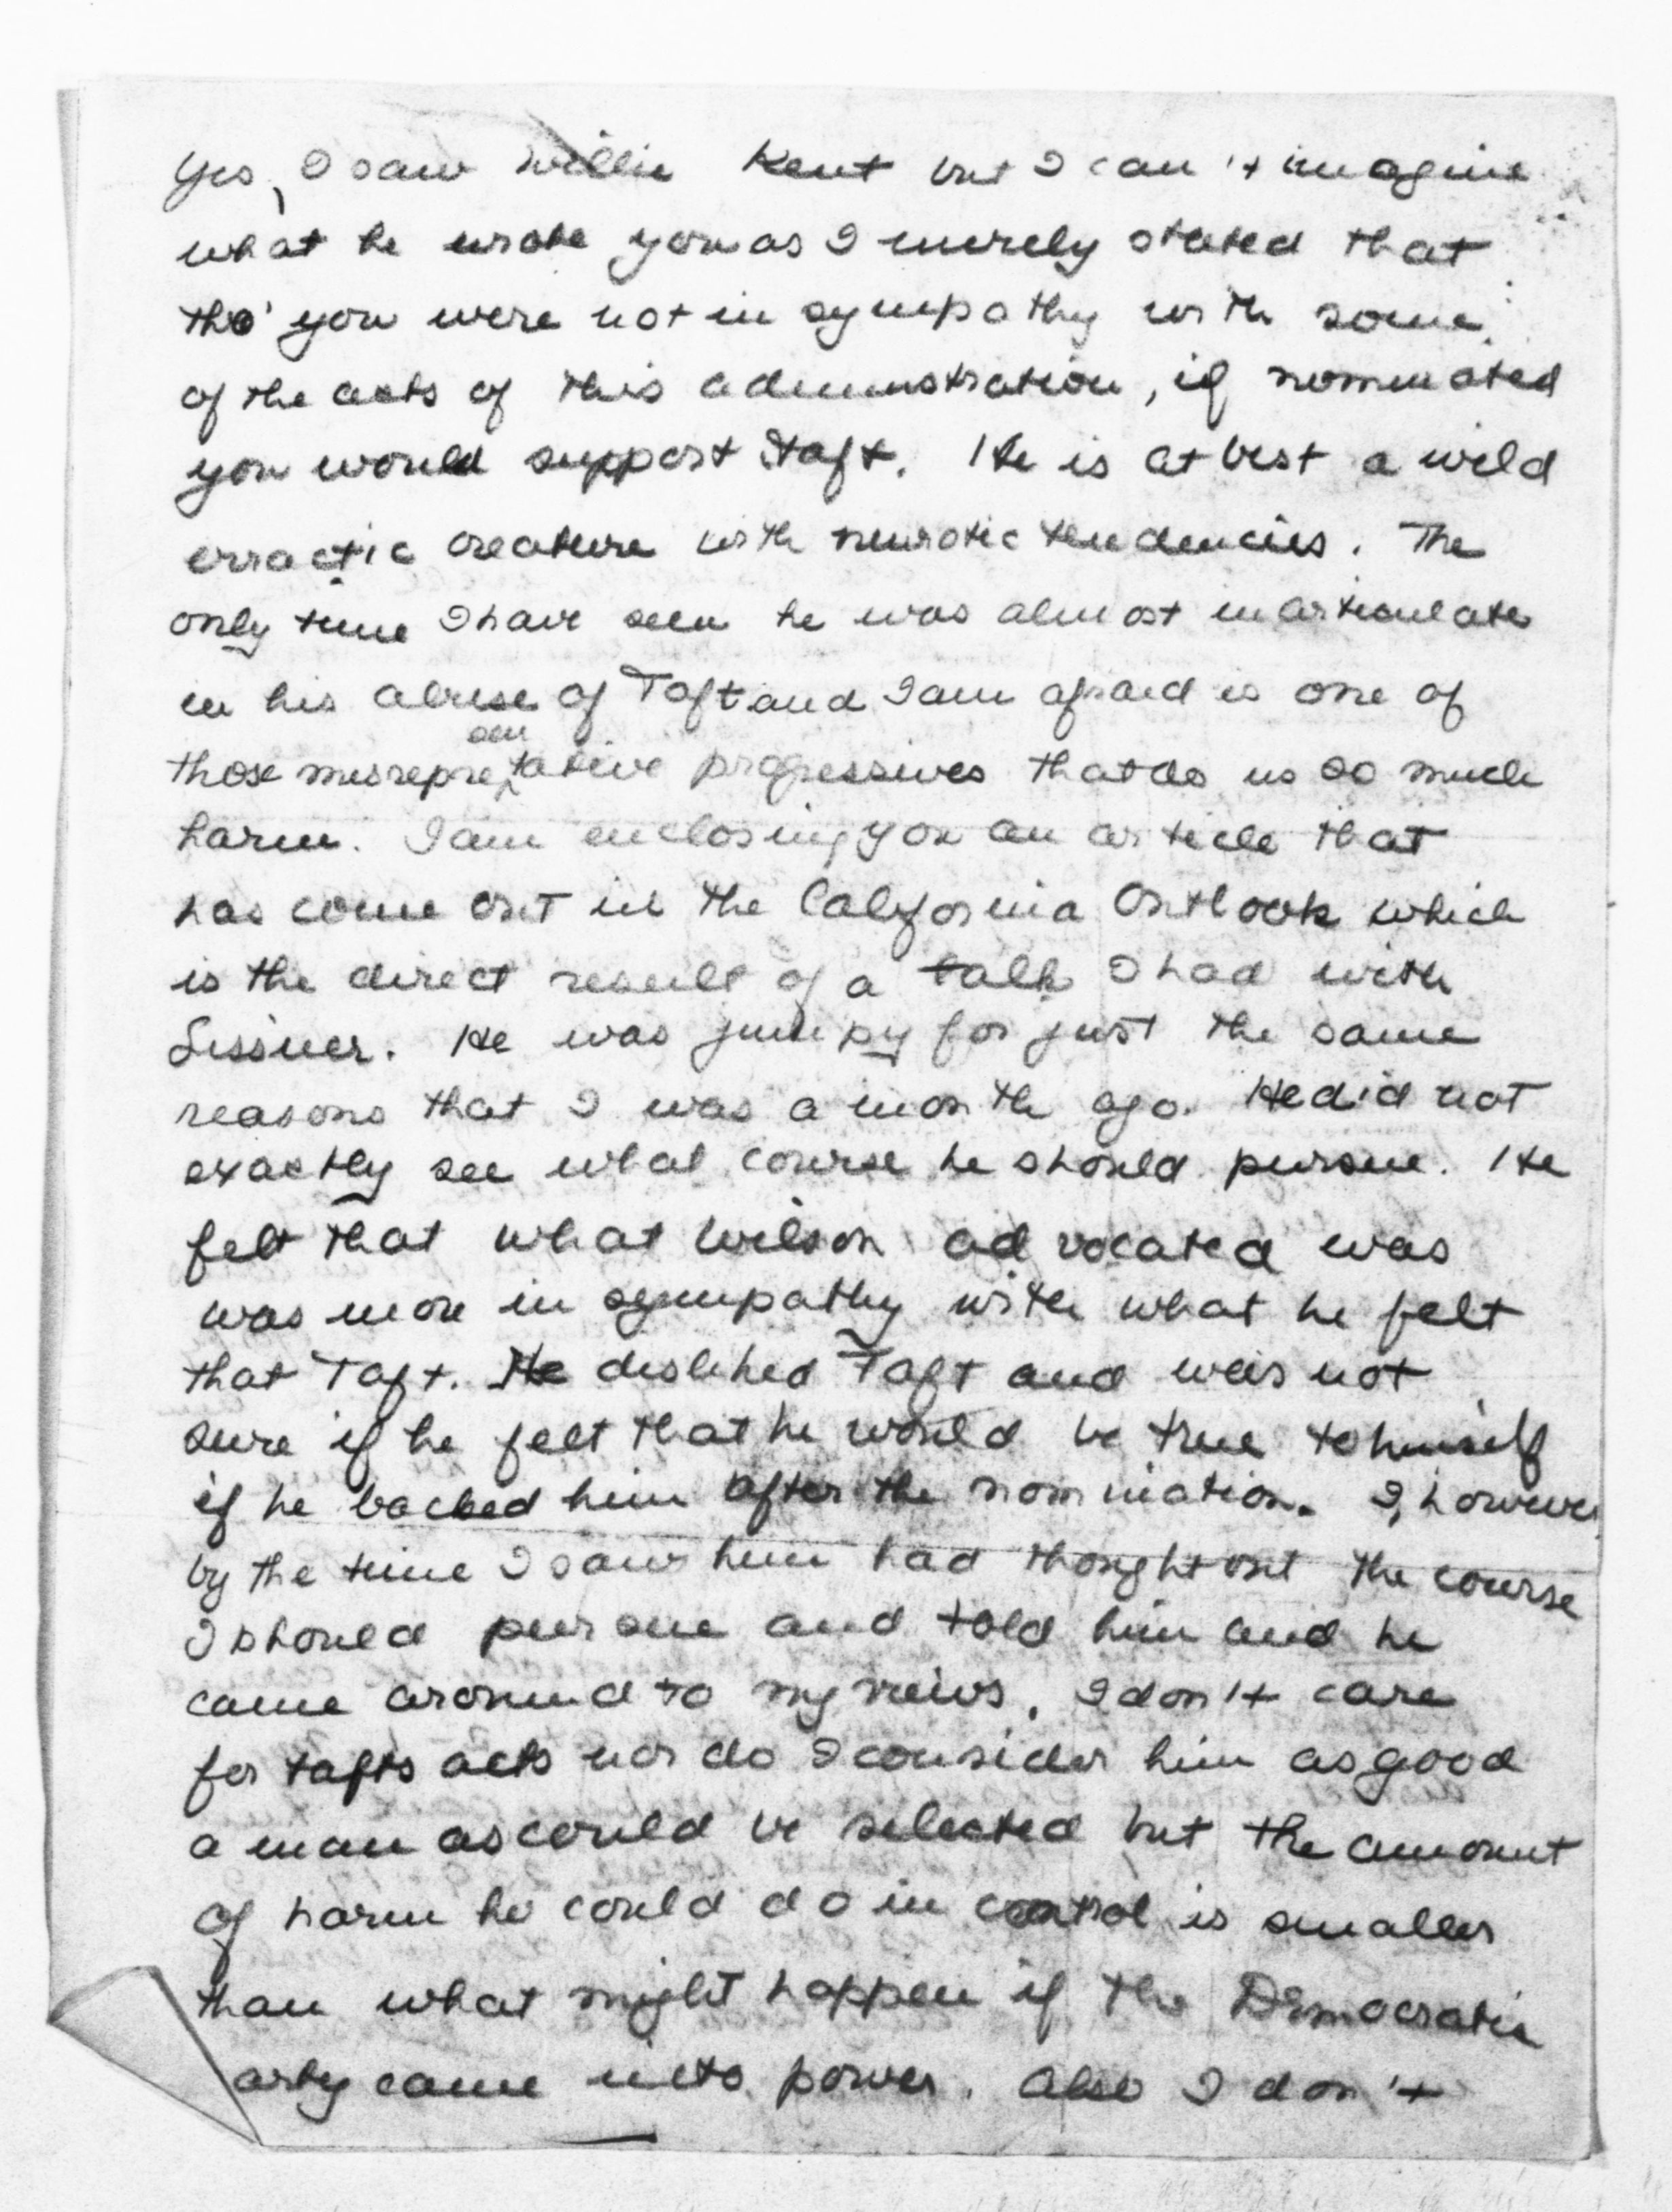 Yes, I saw Willie Kent but I can't imagine
what he wrote you as I merely stated that
tho' you were not in sympathy with some
of the acts of this adminstration, if nominated
you would support Taft. He is at best a wild
erractic creature with neurotic tendencies. The
only time I have seen he was almost inarticulate
in his abuse of Taft and I am afraid is one of
those misrepresentative progressives that do us so much
harm. I am enclosing you an article that
has come out in the California Outlook which
is the direct result of a talk I had with
Lissner. He was jumpy for just the same
reasons that I was a month ago. He did not
exactly see what course he should pursue. He
felt that what Wilson advocated was
was more in sympathy with what he felt
that Taft. He disliked Taft and was not
sure if he felt that he would be true to himself
if he backed him after the nomination. I, however
by the time I saw him had thought out the course
I should pursue and told him and he
came around to my views. I don't care
for tafts acts nor do I consider him as good
a man as could be selected but the amount
of harm he could do in control is smaller
than what might happen if the Democratic
arty came into power. Also I don't